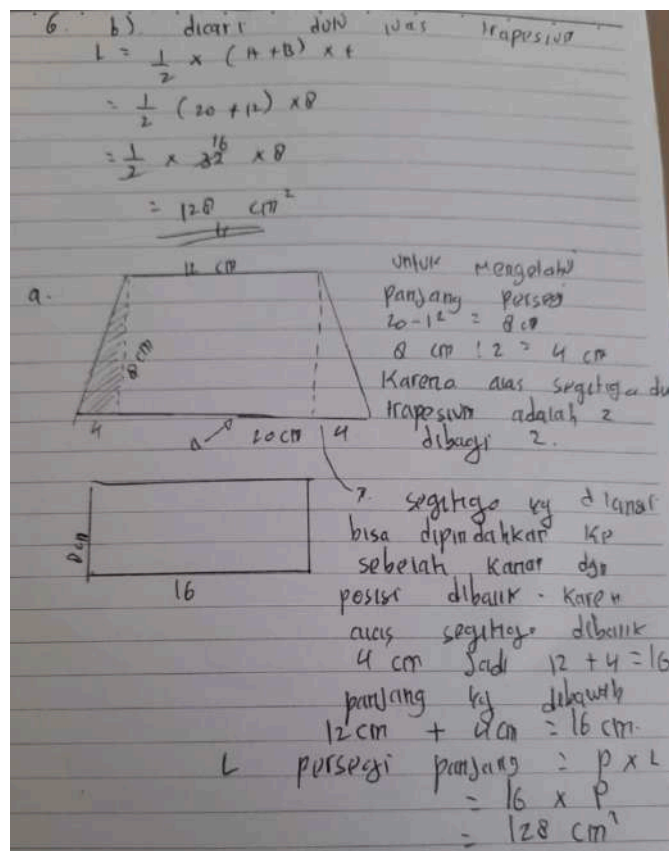 6. b). dicari dulu luas trapesium
L = 1/2 × (A + B) × t
= 1/2 (20 + 12) × 8
= 1/2 × 32 16 × 8
= 128 cm²
a.
12 cm
8 cm
4
20 cm
4
untuk mengetahui
panjang persegi
20 - 12 = 8 cm
8 cm : 2 = 4 cm
Karena alas segitiga
trapesium adalah 2
dibagi 2.
8 cm
16
segitiga yg
bisa dipindahkan ke
sebelah kanan dgn
posisi dibalik. Karen
alas segitiga dibalik
4 cm Jadi 12 + 4 = 16
panjang yg dibawah
12 cm + 4 cm = 16 cm.
L persegi panjang = P × L
= 16 × 8
= 128 cm²